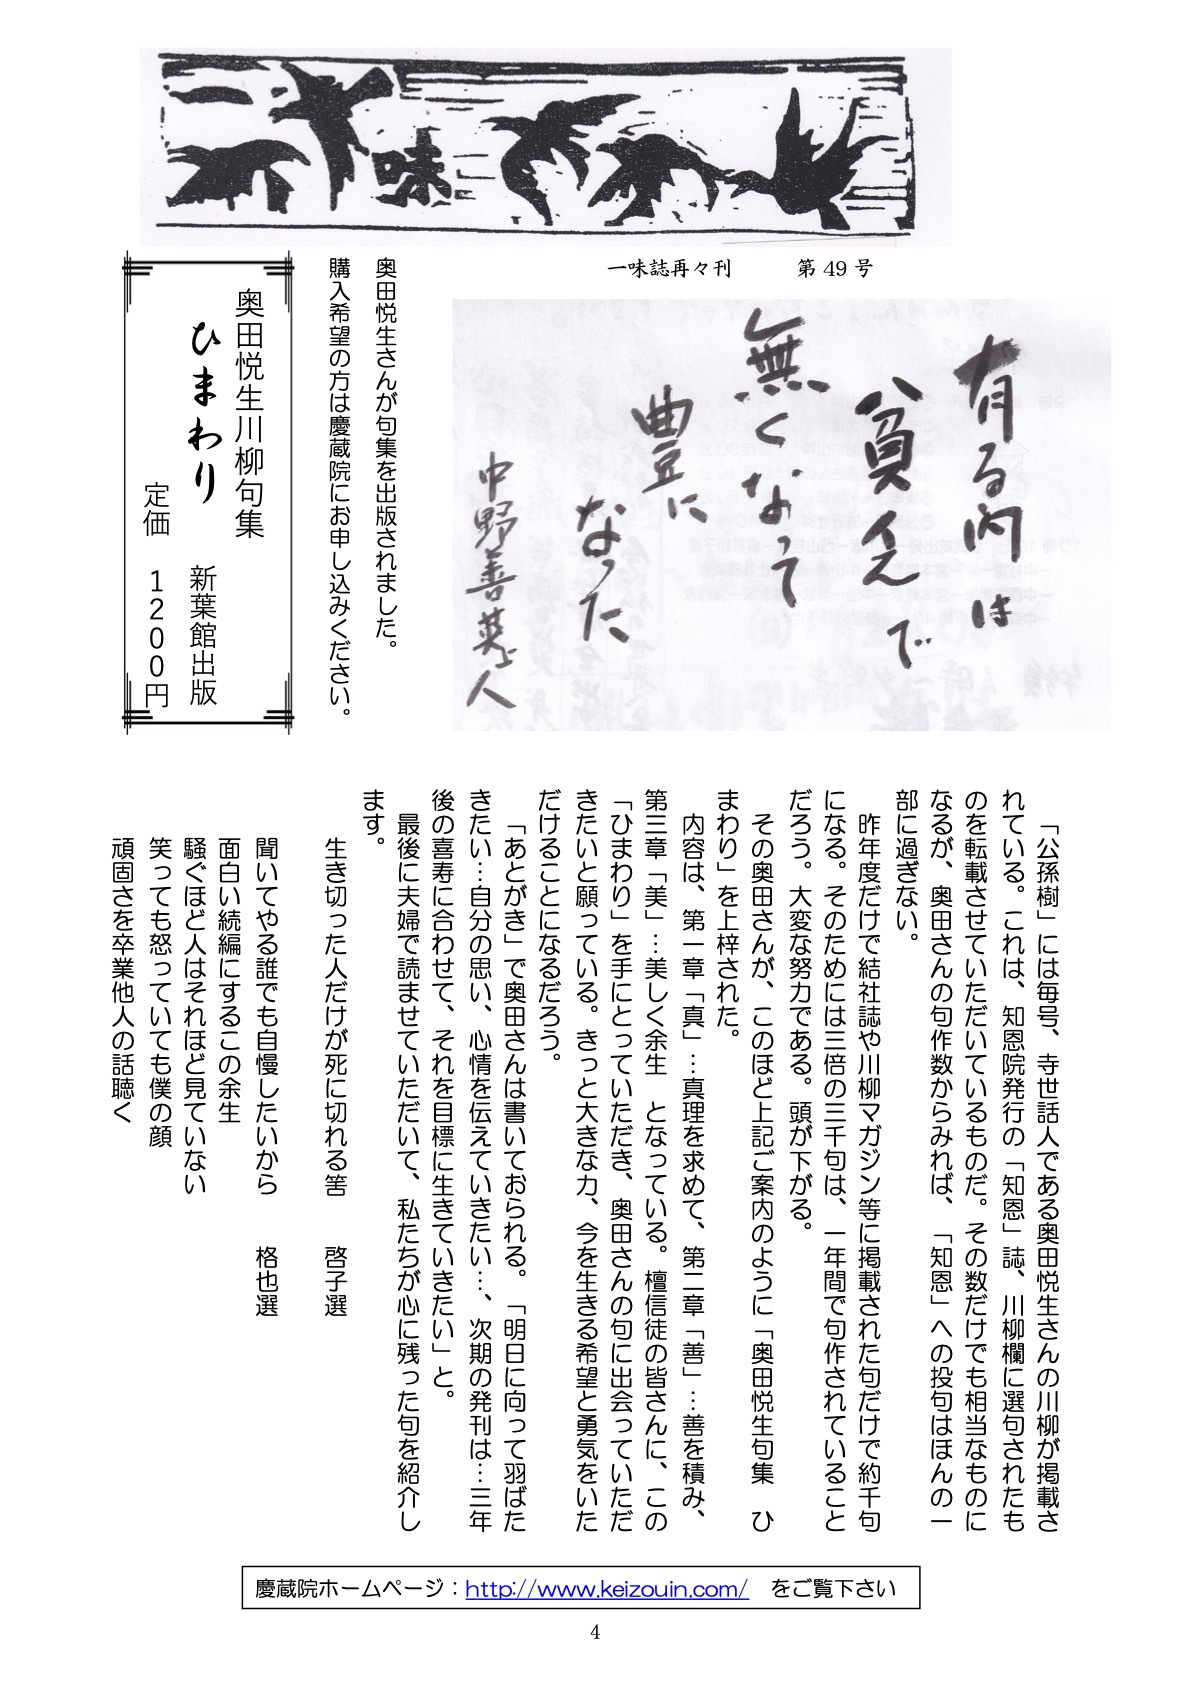 味
一味誌再々刊　第 49 号
有る内は
貧乏で
無くなって
豊に
なった
中野善英上人
奥田悦生さんが句集を出版されました。
購入希望の方は慶蔵院にお申し込みください。
奥田悦生川柳句集
ひまわり　新葉館出版
定価　1200円
「公孫樹」には毎号、寺世話人である奥田悦生さんの川柳が掲載さ
れている。これは、知恩院発行の「知恩」誌、川柳欄に選句されたも
のを転載させていただいているものだ。その数だけでも相当なものに
なるが、奥田さんの句作数からみれば、「知恩」への投句はほんの一
部に過ぎない。
昨年度だけで結社誌や川柳マガジン等に掲載された句だけで約千句
になる。そのためには三倍の三千句は、一年間で句作されていること
だろう。大変な努力である。頭が下がる。
その奥田さんが、このほど上記ご案内のように「奥田悦生句集　ひ
まわり」を上梓された。
内容は、第一章「真」…真理を求めて、第二章「善」…善を積み、
第三章「美」…美しく余生　となっている。檀信徒の皆さんに、この
「ひまわり」を手にとっていただき、奥田さんの句に出会っていただ
きたいと願っている。きっと大きな力、今を生きる希望と勇気をいた
だけることになるだろう。
「あとがき」で奥田さんは書いておられる。「明日に向って羽ばた
きたい…自分の思い、心情を伝えていきたい…、次期の発刊は…三年
後の喜寿に合わせて、それを目標に生きていきたい」と。
最後に夫婦で読ませていただいて、私たちが心に残った句を紹介し
ます。
生き切った人だけが死に切れる筈　啓子選
聞いてやる誰でも自慢したいから　格也選
面白い続編にするこの余生
騒ぐほど人はそれほど見ていない
笑っても怒っていても僕の顔
頑固さを卒業他人の話聴く
慶蔵院ホームページ：http://www.keizouin.com/　をご覧下さい
4